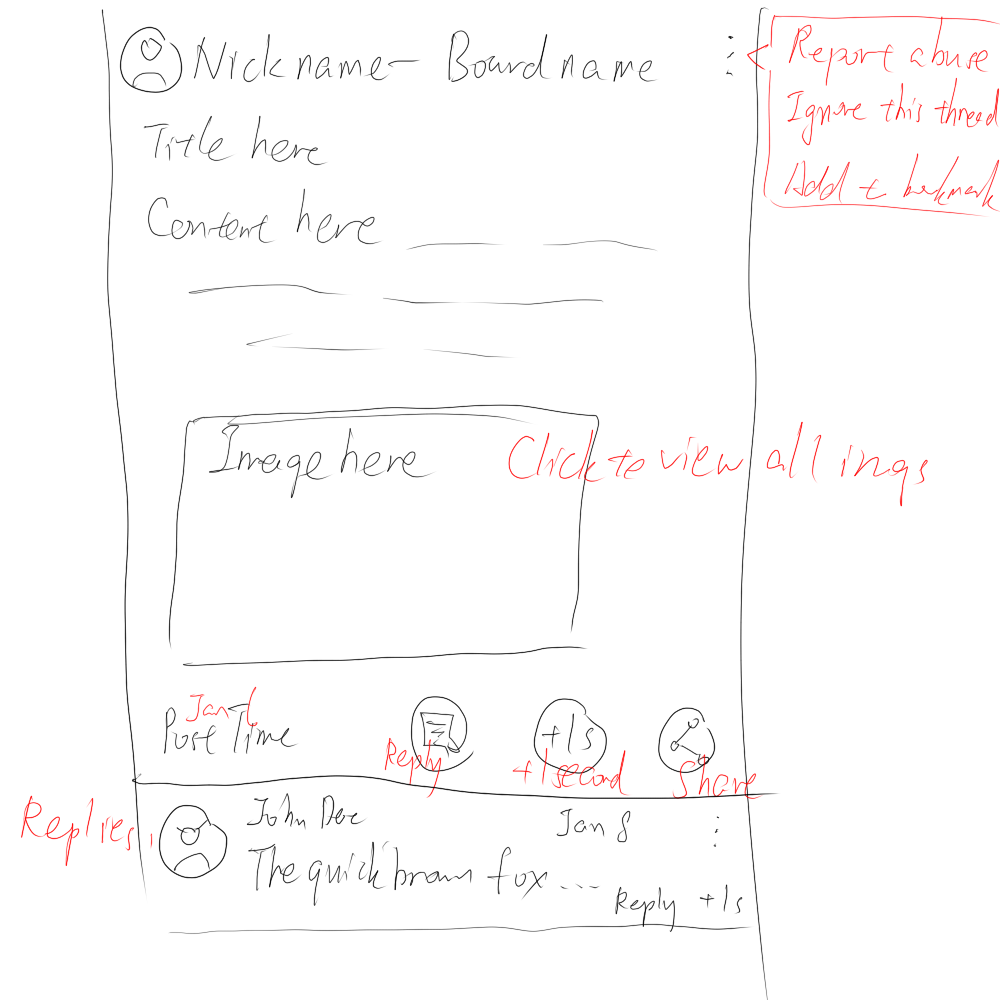 Nickname - Boardname
Report abuse
Ignore this thread
Add to bookmark
Title here
Content here
Image here
Click to view all imgs
Jan 6
Post Time
+1s
Reply
+1 second
Share
Replies
John Doe
Jan 8
The quick brown fox ...
Reply +1s